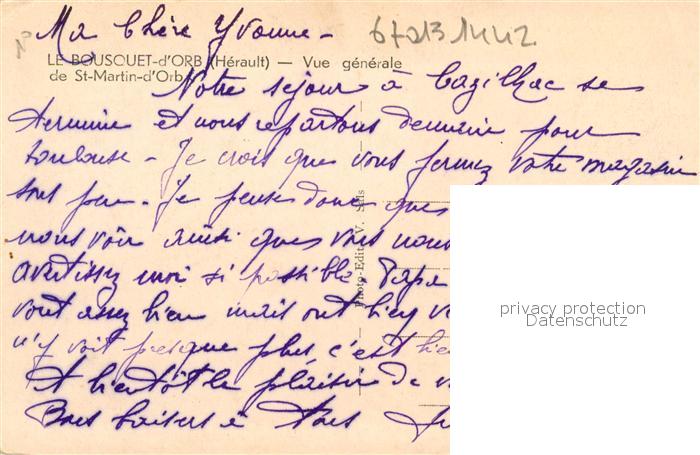 Ma Chère Yvonne -
67213 1442
LE BOUSQUET-d'ORB (Hérault) — Vue générale
de St-Martin-d'Orb
Notre séjour à Cazilhac se
termine et nous repartons demain pour
toulouse - Je crois que vous fermez votre magasin
sous peu - Je pense donc que
nous voir ainsi que vous nous
avertissez moi si possible. Papa
vont assez bien mais ont bien
n'y voit presque plus, c'est bien
A bientôt le plaisir de
Bons baisers à Tous
Photo-Edit. V. Sels
privacy protection
Datenschutz